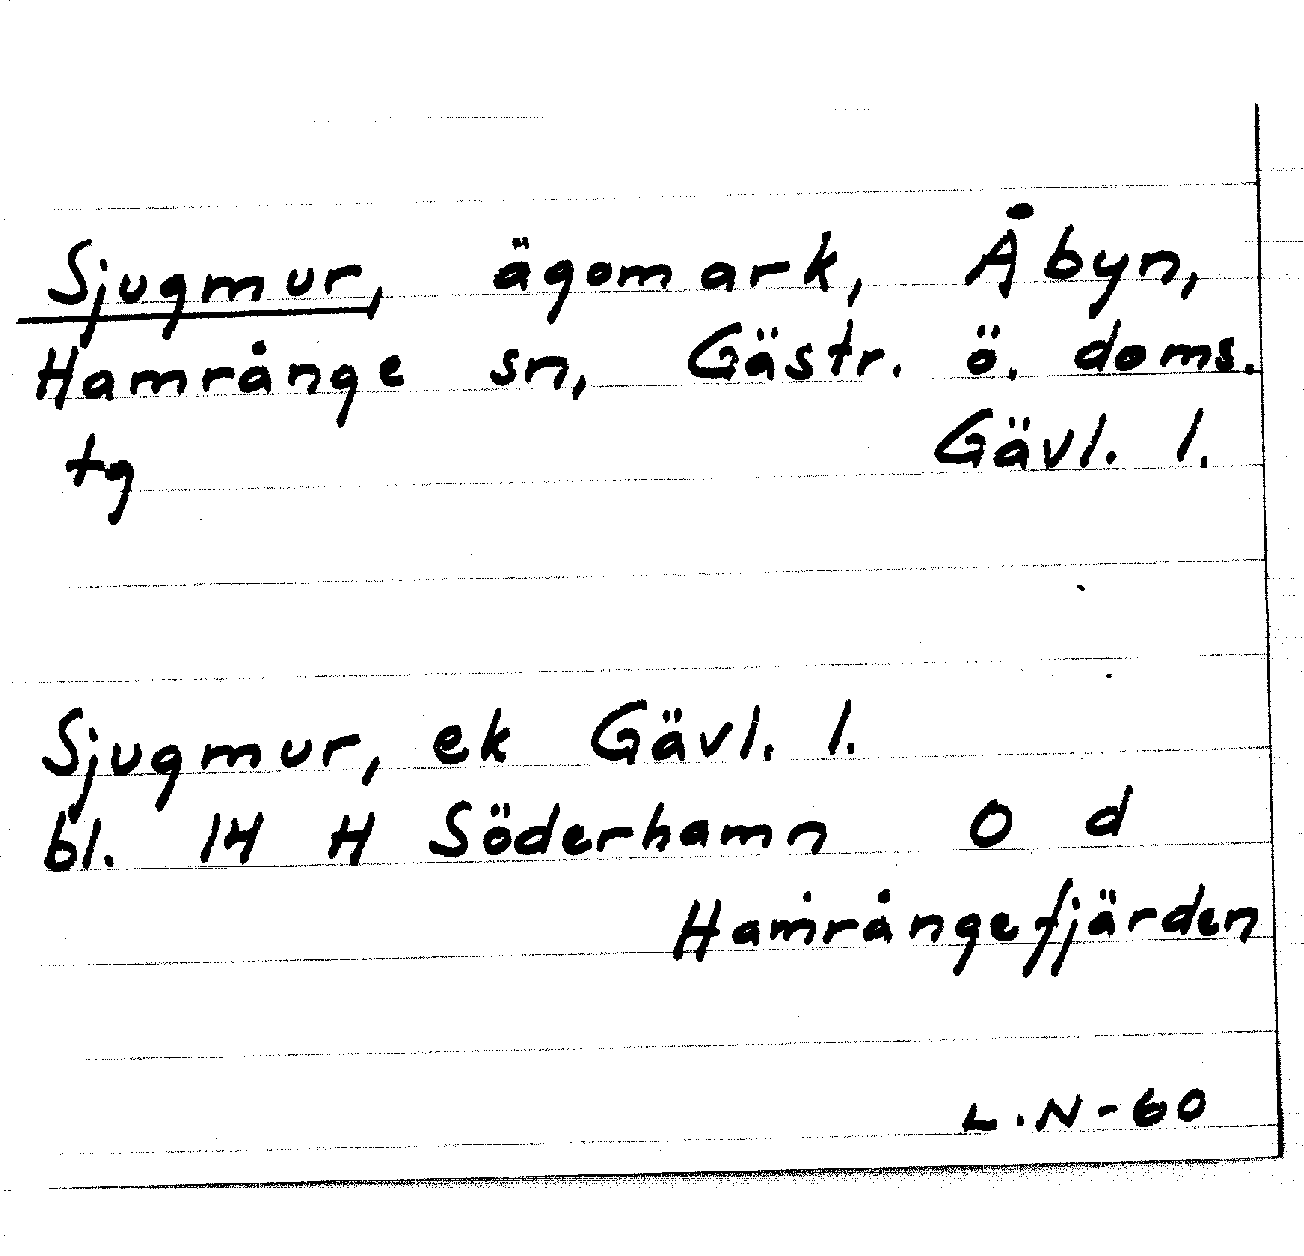 Sjugmur, ägomark, Åbyn,
Hamrånge sn, Gästr. ö. doms.
tg Gävl. l.
Sjugmur, ek Gävl. l.
bl. 14 H Söderhamn O d
Hamrångefjärden
L.N-60